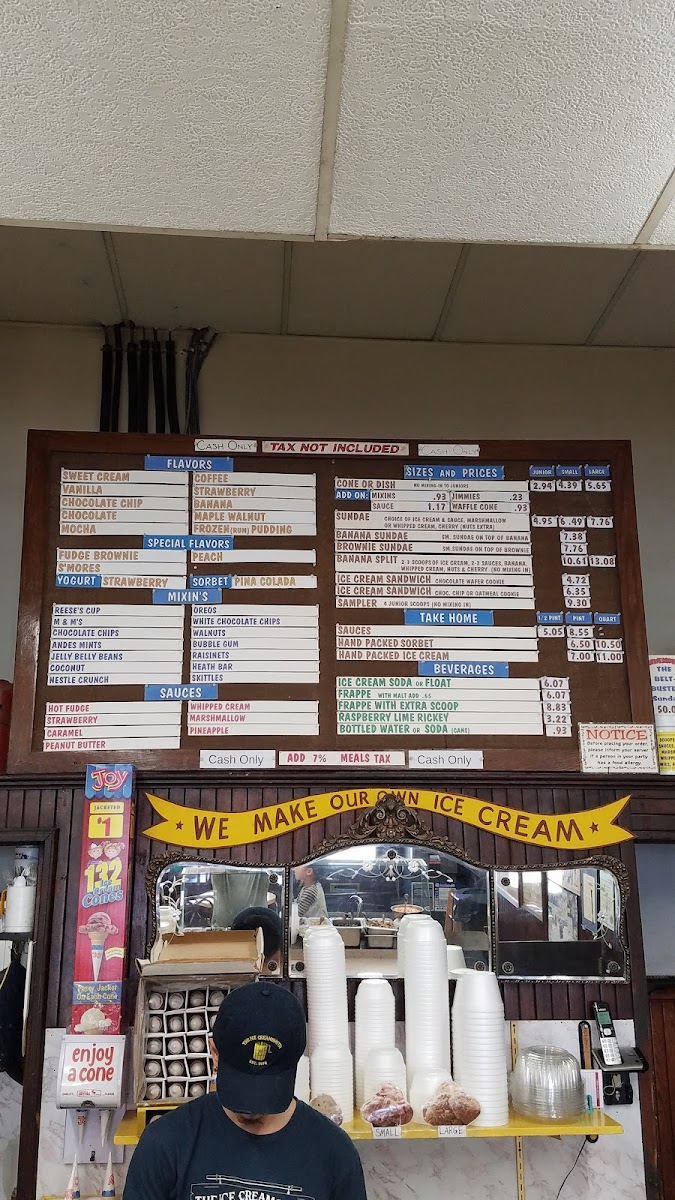 CASH ONLY
TAX NOT INCLUDED
CASH ONLY
FLAVORS
SWEET CREAM
COFFEE
VANILLA
STRAWBERRY
CHOCOLATE CHIP
BANANA
CHOCOLATE
MAPLE WALNUT
MOCHA
FROZEN (RUM) PUDDING
SPECIAL FLAVORS
FUDGE BROWNIE
PEACH
S'MORES
YOGURT STRAWBERRY
SORBET PINA COLADA
MIXIN'S
REESE'S CUP
OREOS
M & M'S
WHITE CHOCOLATE CHIPS
CHOCOLATE CHIPS
WALNUTS
ANDES MINTS
BUBBLE GUM
JELLY BELLY BEANS
RAISINETS
COCONUT
HEATH BAR
NESTLE CRUNCH
SKITTLES
SAUCES
HOT FUDGE
WHIPPED CREAM
STRAWBERRY
MARSHMALLOW
CARAMEL
PINEAPPLE
PEANUT BUTTER
SIZES AND PRICES
JUNIOR SMALL LARGE
CONE OR DISH NO MIXING IN TO JUNIORS 2.94 4.39 5.65
ADD ON: MIXINS .93 JIMMIES .23
SAUCE 1.17 WAFFLE CONE .93
SUNDAE CHOICE OF ICE CREAM & SAUCE, MARSHMALLOW 4.95 6.49 7.76
OR WHIPPED CREAM, CHERRY (NUTS EXTRA)
BANANA SUNDAE SM. SUNDAE ON TOP OF BANANA 7.38
BROWNIE SUNDAE SM. SUNDAE ON TOP OF BROWNIE 7.76
BANANA SPLIT 2-3 SCOOPS OF ICE CREAM, 2-3 SAUCES, BANANA, 10.61 13.08
WHIPPED CREAM, NUTS & CHERRY (NO MIXING IN)
ICE CREAM SANDWICH CHOCOLATE WAFER COOKIE 4.72
ICE CREAM SANDWICH CHOC. CHIP OR OATMEAL COOKIE 6.35
SAMPLER 4 JUNIOR SCOOPS (NO MIXING IN) 9.30
TAKE HOME
1/2 PINT PINT QUART
SAUCES 5.05 8.55
HAND PACKED SORBET 6.50 10.50
HAND PACKED ICE CREAM 7.00 11.00
BEVERAGES
ICE CREAM SODA OR FLOAT 6.07
FRAPPE WITH MALT ADD .65 6.07
FRAPPE WITH EXTRA SCOOP 8.83
RASPBERRY LIME RICKEY 3.22
BOTTLED WATER OR SODA (CANS) .93
Cash Only
ADD 7% MEALS TAX
Cash Only
NOTICE
Before placing your order,
please inform your server
if a person in your party
has a food allergy.
THE
BELT-
BUSTE
50.0
WE MAKE OUR OWN ICE CREAM
JOY
JACKETED
$1
132
Cones
Paper Jacket
On Each Cone
enjoy
a cone
THE ICE CREAMSMITH
SMALL
LARGE
THE ICE CREAMS